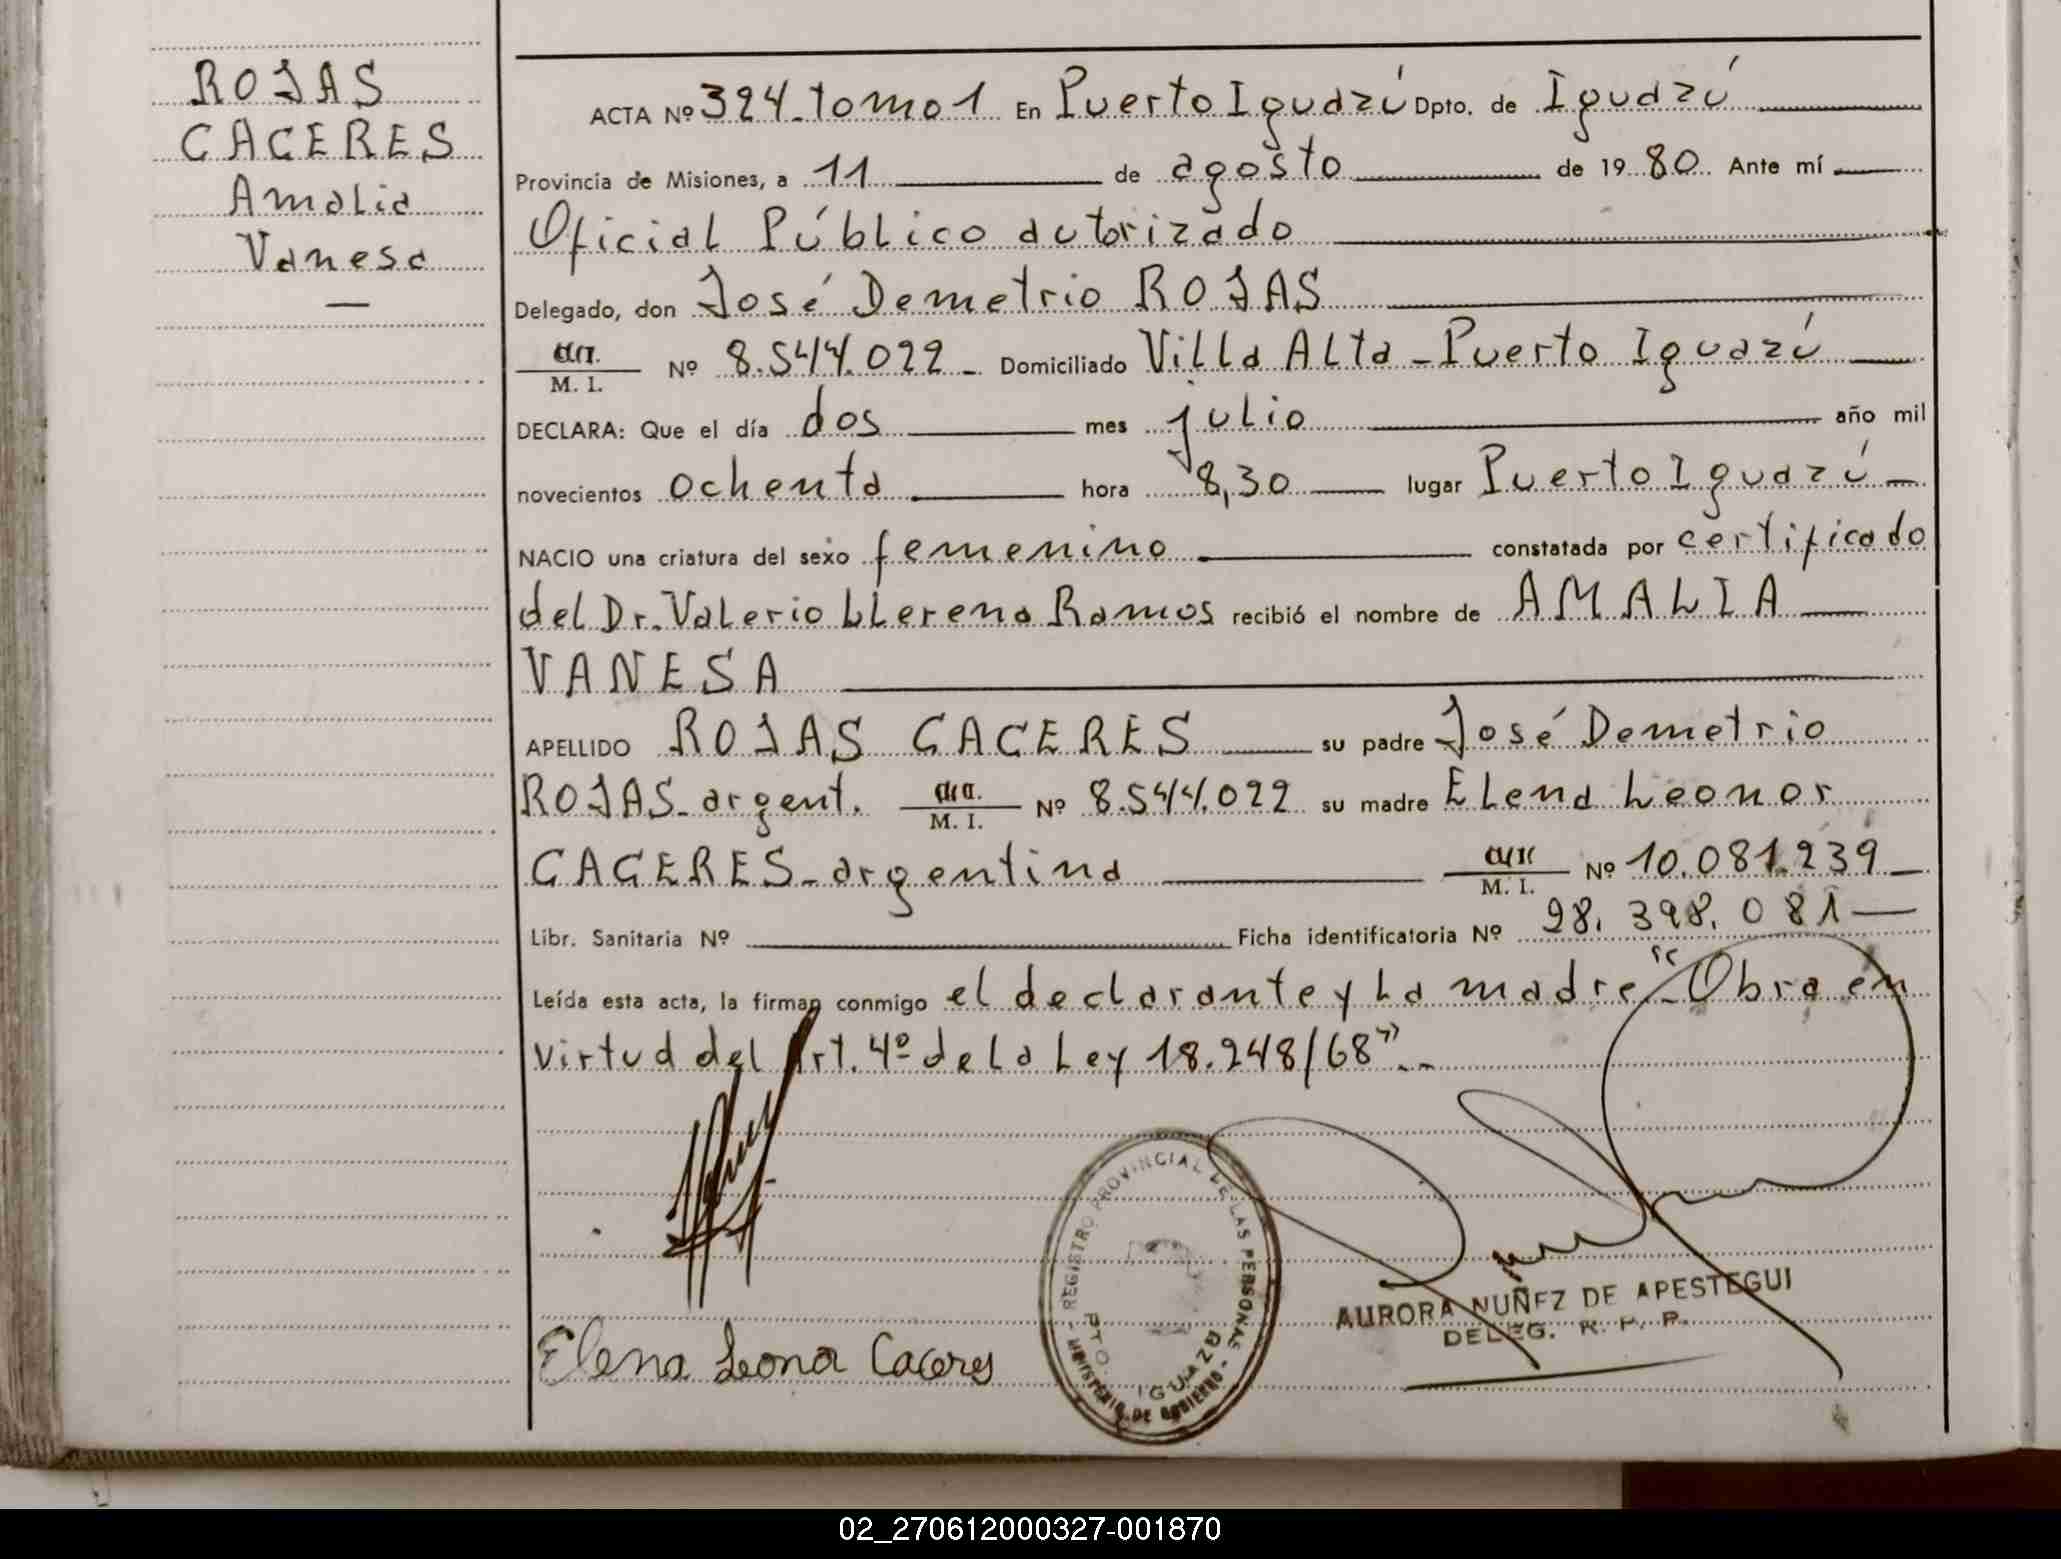 ROJAS
CACERES
Amalia
Vanesa
—
ACTA Nº 324. tomo 1 En Puerto Iguazú Dpto. de Iguazú
Provincia de Misiones, a 11 de agosto de 1980. Ante mí
Oficial Público autorizado
Delegado, don José Demetrio ROJAS
M. I. Nº 8.544.022 - Domiciliado Villa Alta - Puerto Iguazú
DECLARA: Que el día dos mes julio año mil
novecientos ochenta hora 8,30 lugar Puerto Iguazú
NACIO una criatura del sexo femenino constatada por certificado
del Dr. Valerio LLerena Ramos recibió el nombre de AMALIA
VANESA
APELLIDO ROJAS CACERES su padre José Demetrio
ROJAS - argent. M. I. Nº 8.544.022 su madre Elena Leonor
CACERES - argentina M. I. Nº 10.081.239
Libr. Sanitaria Nº Ficha identificatoria Nº 28.398.081
Leída esta acta, la firman conmigo el declarante y la madre - "Obra en
virtud del Art. 4º de la Ley 18.248/68" --
REGISTRO PROVINCIAL DE LAS PERSONAS
PTO. IGUAZU
MINISTERIO DE GOBIERNO
AURORA NUÑEZ DE APESTEGUI
DELEG. R. P. P.
Elena Leonor Caceres
02_270612000327-001870